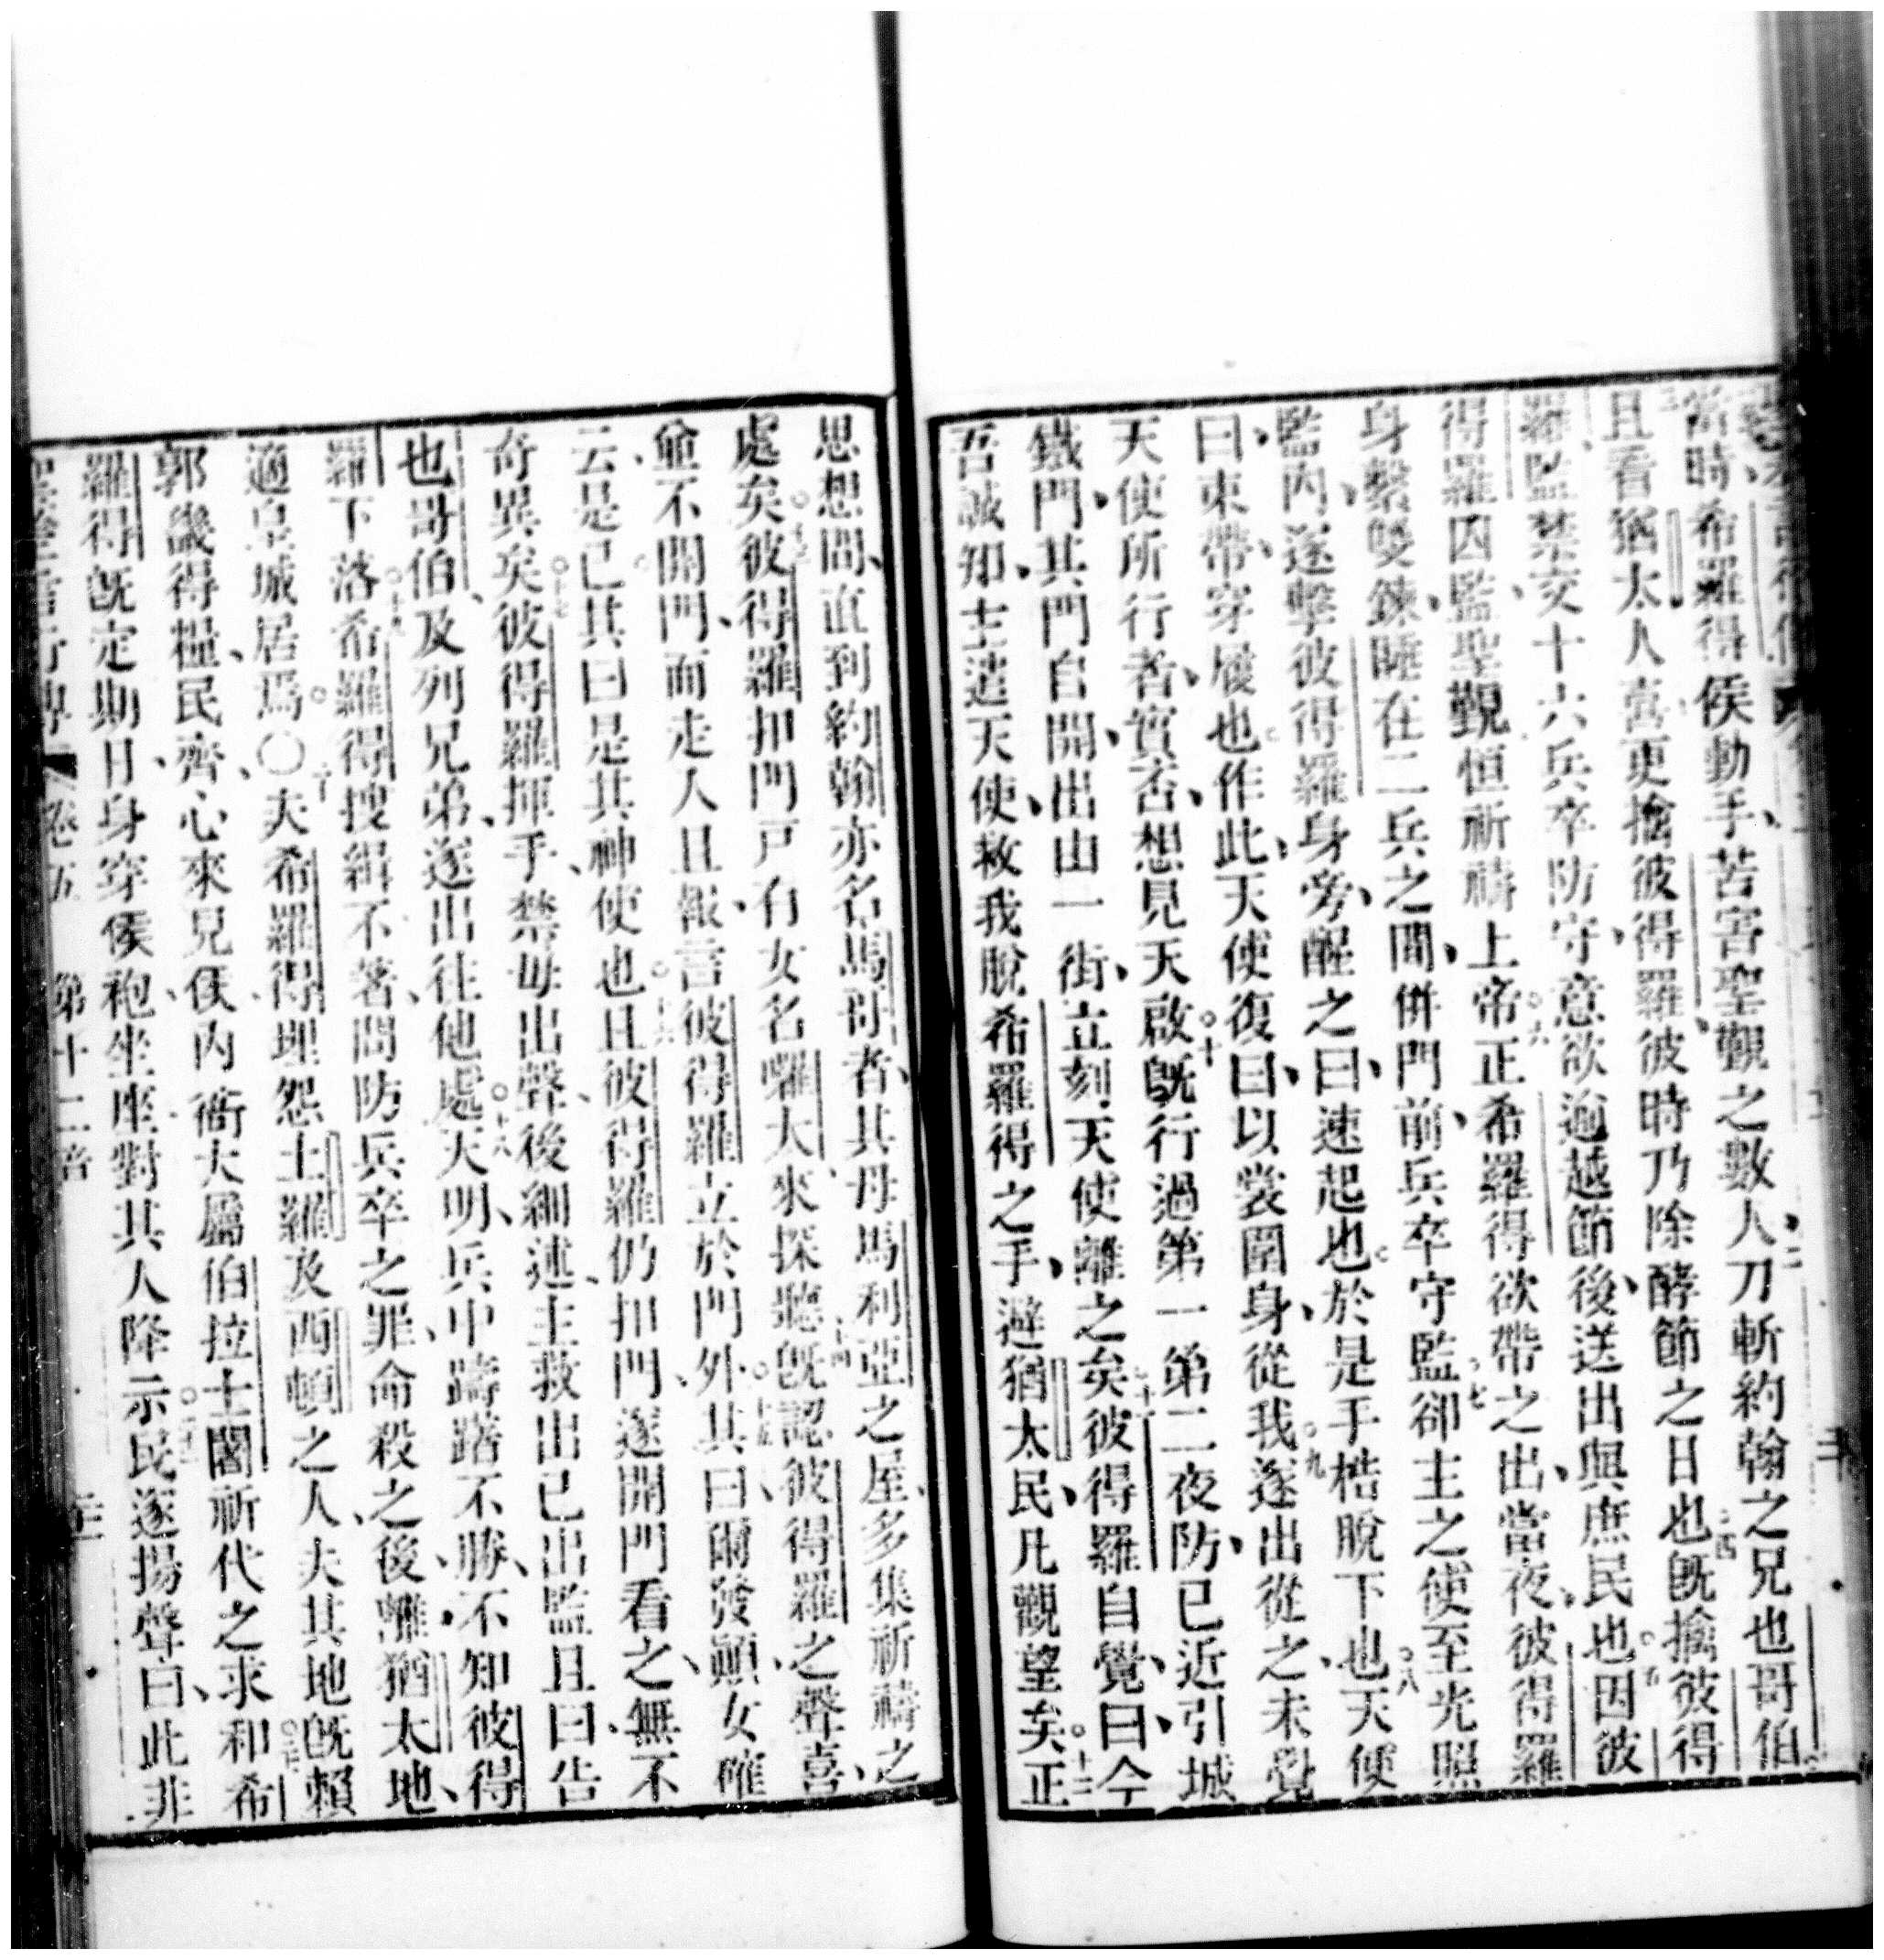 當時希羅得侯動手、苦害聖觐之數人、二刀斬約翰之兄也哥伯。
三且看猶太人喜更擒彼得羅、彼時乃除酵節之日也。四旣擒彼得
羅、監禁交十六兵卒防守、意欲逾越節後、送出與庶民也。五因彼
得羅囚監、聖觐恒祈禱上帝。六正希羅得欲帶之出、當夜、彼得羅
身繫雙鍊、睡在二兵之間、併門前、兵卒守監。七卻主之使至、光照
監內、遂擊彼得羅身旁、醒之、曰、速起也。於是手梏脫下也。八天使
曰、束帶、穿履也。作此、天使復曰、以裳圍身、從我。九遂出從之、未覺
天使所行者、實否、想見天啟。十旣行過第一第二夜防、已近引城
鐵門、其門自開、出由一街、立刻天使離之矣。十一彼得羅自覺、曰、今
吾誠知、主遣天使、救我脫希羅得之手、避猶太民、凡觀望矣。十二正
思想間、直到約翰亦名馬哥者、其母馬利亞之屋、多集祈禱之
處矣。十三彼得羅扣門戶、有女名囉大、來探聽。十四旣認彼得羅之聲、喜、
僉不開門、而走入且報言、彼得羅立於門外。十五其曰、爾發顚、女確
云、是已、其曰、是其神使也。十六且彼得羅仍扣門、遂開門看之、無不
奇異矣。十七彼得羅揮手、禁毋出聲、後細述主救出已出監、且曰、告
也哥伯、及列兄弟、遂出往他處。十八天明、兵中躊躇不勝、不知彼得
羅下落。十九希羅得搜緝不著、問防兵卒之罪、命殺之後、離猶太地、
適皇城居焉。〇二十夫希羅得埋怨土羅及西頓之人、夫其地旣賴
郭畿得糧、民齊心來見侯、內衙大屬伯拉士閣、祈代之求和。希
羅得旣定期日、身穿侯袍、坐座對其人降示。民遂揚聲曰、此非
卷五 第十二章